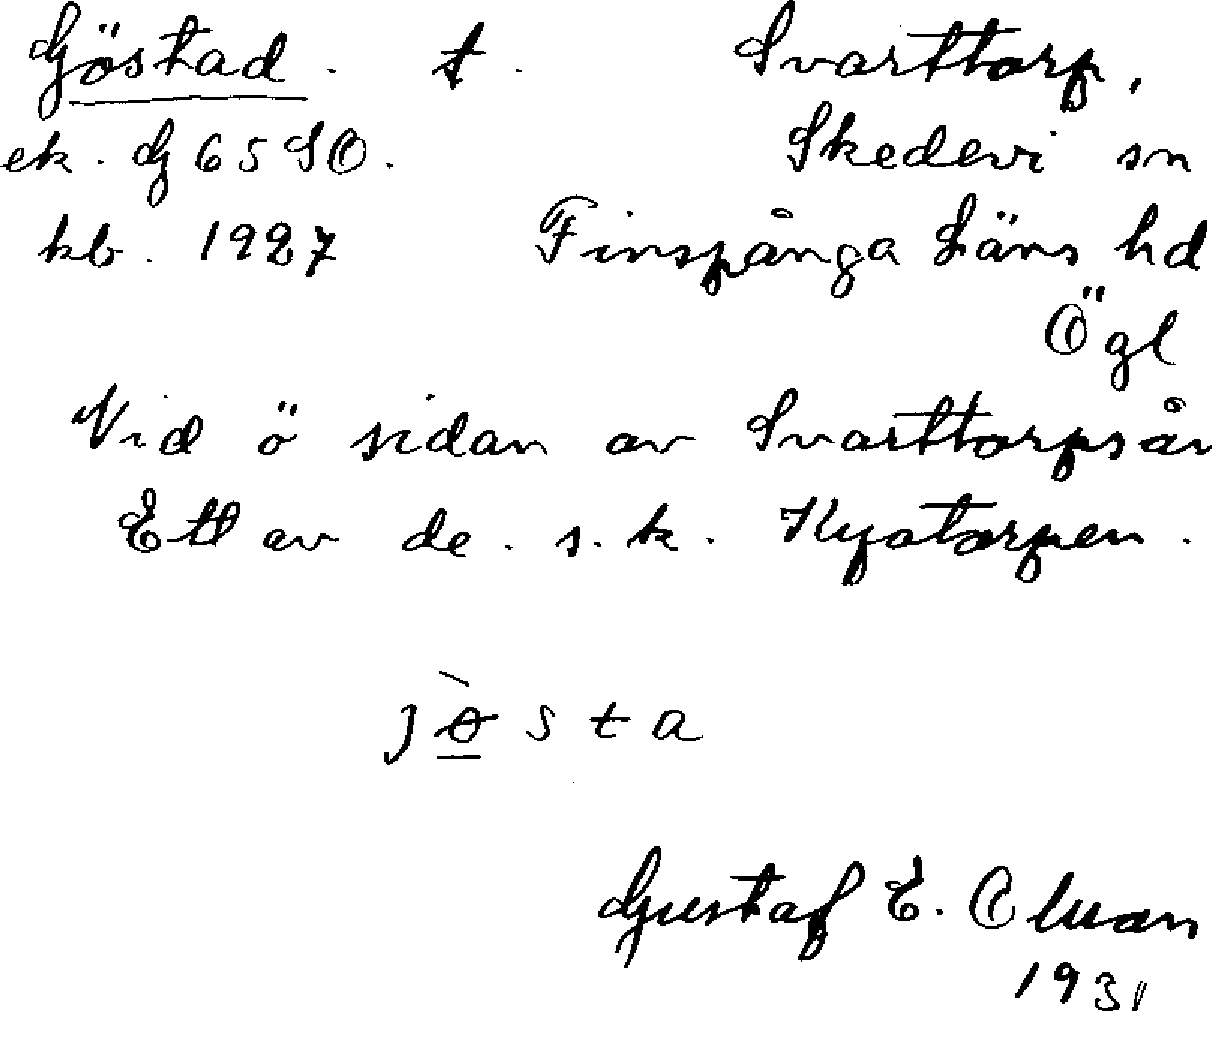 Göstad. t. Svarttorp,
ek. G 65 SO. Skedevi sn
kb. 1927 Finspånga Läns hd
Ögl
Vid ö sidan av Svarttorpsån
Ett av de. s.k. Kyatorpen.
jɵ̀sta
Gustaf E. Olman
1931